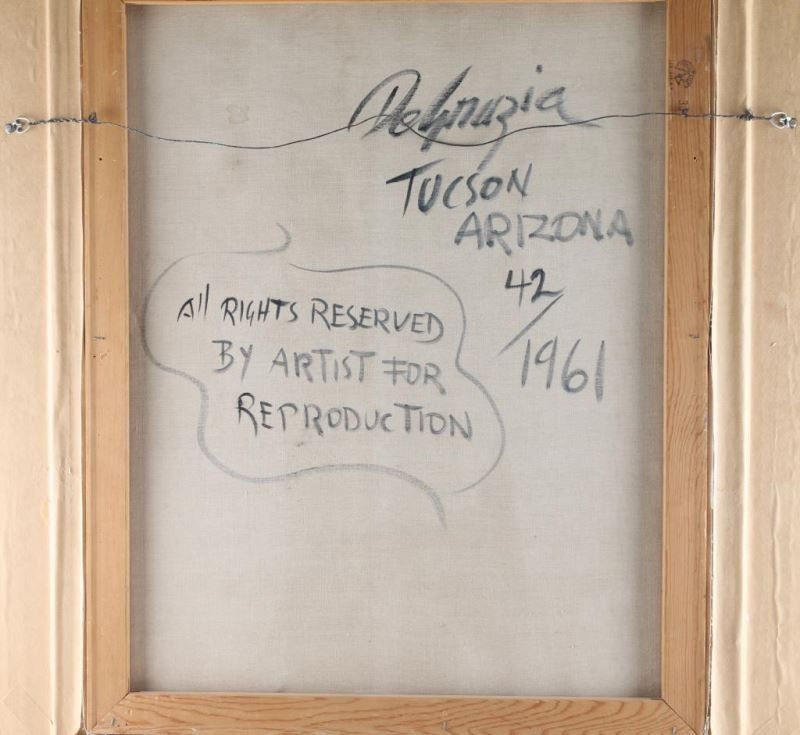 DeGrazia
TUCSON
ARIZONA
42/1961
All RIGHTS RESERVED
BY ARTIST FOR
REPRODUCTION